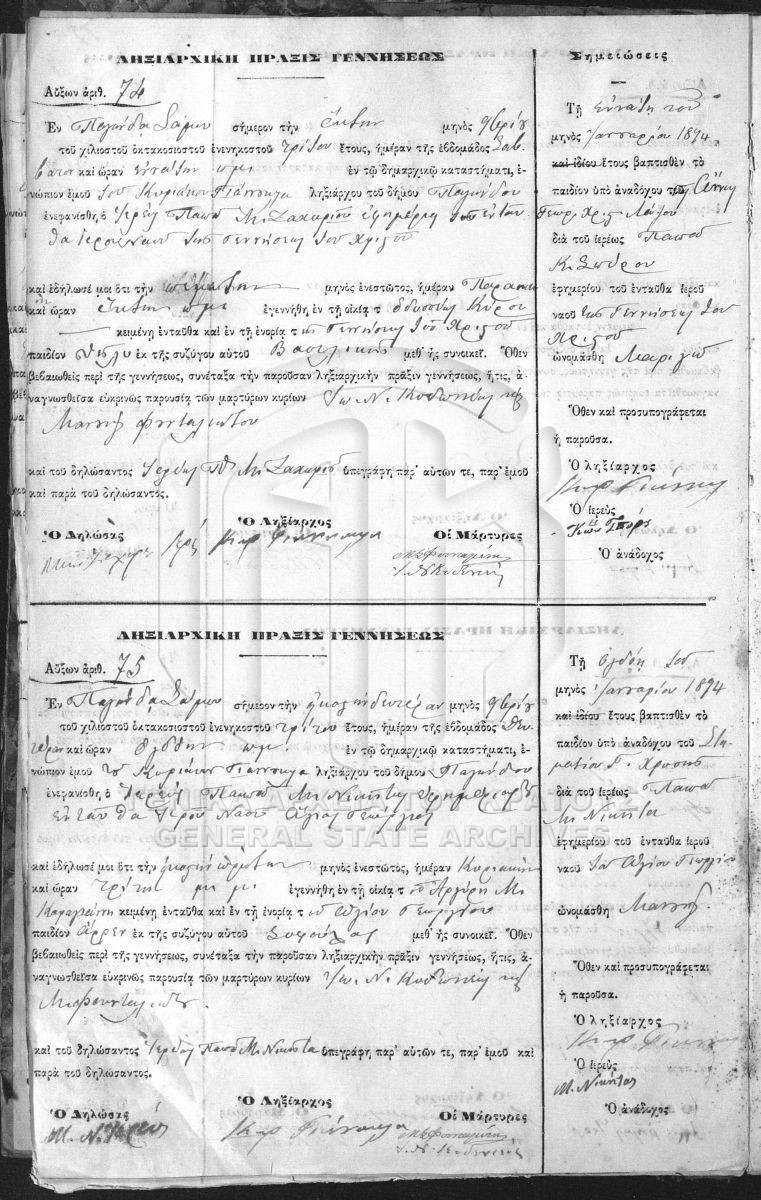 ΛΗΞΙΑΡΧΙΚΗ ΠΡΑΞΙΣ ΓΕΝΝΗΣΕΩΣ
Αὔξων ἀριθ. 74
Ἐν Παγώνδα Σάμου σήμερον τὴν ἕκτην μηνὸς 9βρίου
τοῦ χιλιοστοῦ ὀκτακοσιοστοῦ ἐνενηκοστοῦ τρίτου ἔτους, ἡμέραν τῆς ἑβδομάδος Σαβ
βάτον καὶ ὥραν ἐννάτην πμ. ἐν τῷ δημαρχικῷ καταστήματι, ἐ-
νώπιον ἐμοῦ τοῦ Κυριάκου ληξιάρχου τοῦ δήμου Παγώνδου
ἐνεφανίσθη ὁ Ἱερεὺς Παπᾶ Μ. Ζαχαρίου ἐφημέριος τοῦ ἐνταῦ
θα ἱεροῦ ναοῦ τῆς Γεννήσεως τοῦ Χριστοῦ
καὶ ἐδήλωσέ μοι ὅτι τὴν πέμπτην μηνὸς ἐνεστῶτος, ἡμέραν Παρασκευ
καὶ ὥραν ἕκτην πμ. ἐγεννήθη ἐν τῇ οἰκίᾳ τ Ὀδυσσέως Κύρου
κειμένῃ ἐνταῦθα καὶ ἐν τῇ ἐνορίᾳ τῆς Γεννήσεως τοῦ Χριστοῦ
παιδίον θῆλυ ἐκ τῆς συζύγου αὐτοῦ Βασιλικῆς μεθ' ἧς συνοικεῖ. Ὅθεν
βεβαιωθεὶς περὶ τῆς γεννήσεως, συνέταξα τὴν παροῦσαν ληξιαρχικὴν πρᾶξιν γεννήσεως, ἥτις, ἀ-
ναγνωσθεῖσα εὐκρινῶς παρουσίᾳ τῶν μαρτύρων κυρίων Ἰω. Ν. καὶ
Μανωλ
καὶ τοῦ δηλώσαντος Ἱερέως Μ. Ζαχαρίου ὑπεγράφη παρ' αὐτῶν τε, παρ' ἐμοῦ
καὶ παρὰ τοῦ δηλώσαντος.
Ὁ Δηλώσας Ὁ Ληξίαρχος Οἱ Μάρτυρες
Σημειώσεις
Τῇ ἐννάτῃ τοῦ
μηνὸς Ἰανουαρίου 1894
καὶ ἰδίου ἔτους βαπτισθὲν τὸ
παιδίον ὑπὸ ἀναδόχου τ
Γεωρ. Χρισ.
διὰ τοῦ ἱερέως Παπᾶ
Κ. Σπύρου
ἐφημερίου τοῦ ἐνταῦθα ἱεροῦ
ναοῦ τῆς Γεννήσεως τοῦ
Χριστοῦ
ὠνομάσθη Μαριγώ
Ὅθεν καὶ προσυπογράφεται
ἡ παροῦσα.
Ὁ ληξίαρχος
Ὁ ἱερεὺς
Ὁ ἀνάδοχος
ΛΗΞΙΑΡΧΙΚΗ ΠΡΑΞΙΣ ΓΕΝΝΗΣΕΩΣ
Αὔξων ἀριθ. 75
Ἐν Παγώνδα Σάμου σήμερον τὴν εἰκοστὴν δευτέραν μηνὸς 9βρίου
τοῦ χιλιοστοῦ ὀκτακοσιοστοῦ ἐνενηκοστοῦ τρίτου ἔτους, ἡμέραν τῆς ἑβδομάδος Δευ
τέραν καὶ ὥραν ὀγδόην πμ. ἐν τῷ δημαρχικῷ καταστήματι, ἐ-
νώπιον ἐμοῦ τοῦ Κυριάκου ληξιάρχου τοῦ δήμου Παγώνδου
ἐνεφανίσθη ὁ Ἱερεὺς Παπᾶ Μ. Νικήτας ἐφημέριος τοῦ
ἐνταῦθα Ἱεροῦ Ναοῦ Ἁγίου Γεωργίου
ΓΕΝΙΚΑ ΑΡΧΕΙΑ ΤΟΥ ΚΡΑΤΟΥΣ
GENERAL STATE ARCHIVES
καὶ ἐδήλωσέ μοι ὅτι τὴν εἰκοστὴν πρώτην μηνὸς ἐνεστῶτος, ἡμέραν Κυριακὴν
καὶ ὥραν τρίτην μμ. ἐγεννήθη ἐν τῇ οἰκίᾳ τοῦ Ἀργύρη Μ.
κειμένῃ ἐνταῦθα καὶ ἐν τῇ ἐνορίᾳ τοῦ Ἁγίου Γεωργίου
παιδίον ἄρρεν ἐκ τῆς συζύγου αὐτοῦ Σοφούλας μεθ' ἧς συνοικεῖ. Ὅθεν
βεβαιωθεὶς περὶ τῆς γεννήσεως, συνέταξα τὴν παροῦσαν ληξιαρχικὴν πρᾶξιν γεννήσεως, ἥτις, ἀ-
ναγνωσθεῖσα εὐκρινῶς παρουσίᾳ τῶν μαρτύρων κυρίων Ἰω. Ν. καὶ
καὶ τοῦ δηλώσαντος Ἱερέως Παπᾶ Μ. Νικήτα ὑπεγράφη παρ' αὐτῶν τε, παρ' ἐμοῦ καὶ
παρὰ τοῦ δηλώσαντος.
Ὁ Δηλώσας Ὁ Ληξίαρχος Οἱ Μάρτυρες
Τῇ ὀγδόῃ τοῦ
μηνὸς Ἰανουαρίου 1894
καὶ ἰδίου ἔτους βαπτισθὲν τὸ
παιδίον ὑπὸ ἀναδόχου τοῦ Στα
ματίου Γ.
διὰ τοῦ ἱερέως Παπᾶ
Μ. Νικήτα
ἐφημερίου τοῦ ἐνταῦθα ἱεροῦ
ναοῦ τοῦ Ἁγίου Γεωργίου
ὠνομάσθη
Ὅθεν καὶ προσυπογράφεται
ἡ παροῦσα.
Ὁ ληξίαρχος
Ὁ ἱερεὺς
Μ. Νικήτας
Ὁ ἀνάδοχος